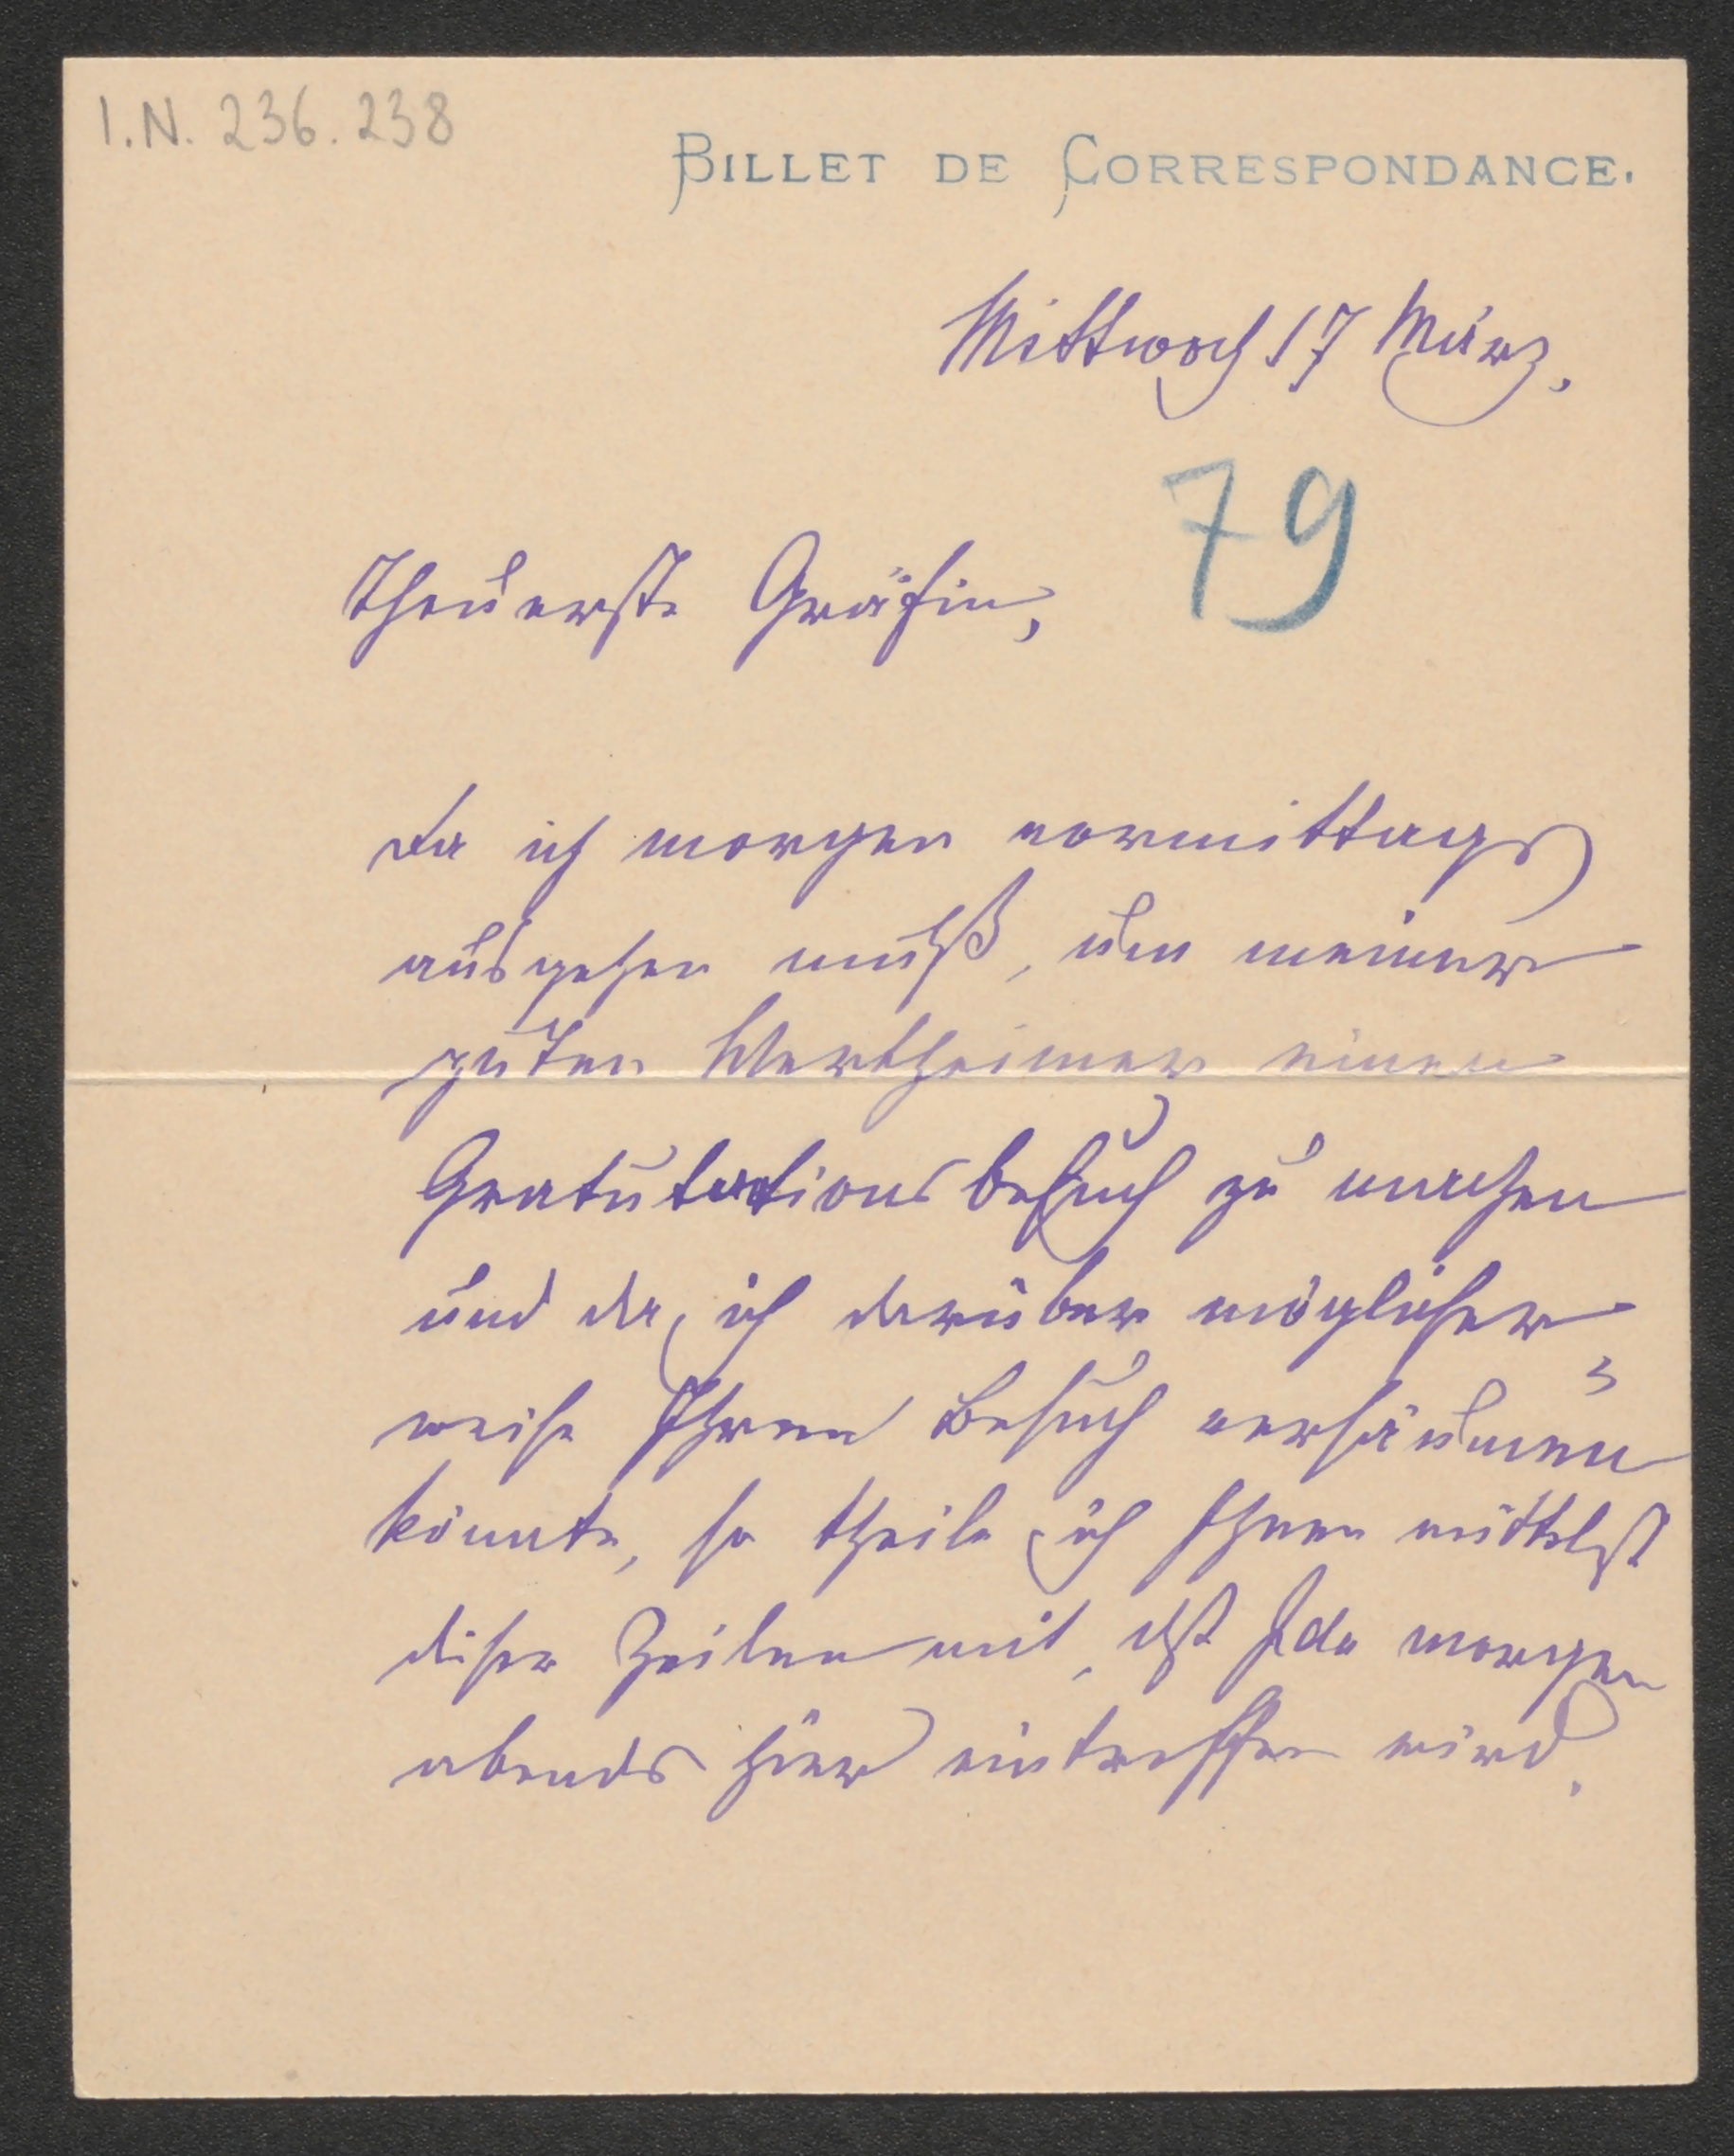 I.N. 236.238
BILLET DE CORRESPONDANCE.
Mittwoch 17 März.
79
Theuerste Gräfin,
da ich morgen vormittags
ausgehen muß, um meiner
guten Wertheimer einen
Gratulationsbesuch zu machen
und da ich darüber möglicher
weise Ihren Besuch versäumen
könnte, so theile ich Ihnen mittelst
diser Zeilen mit, dß Ida morgen
abends hier eintreffen wird.